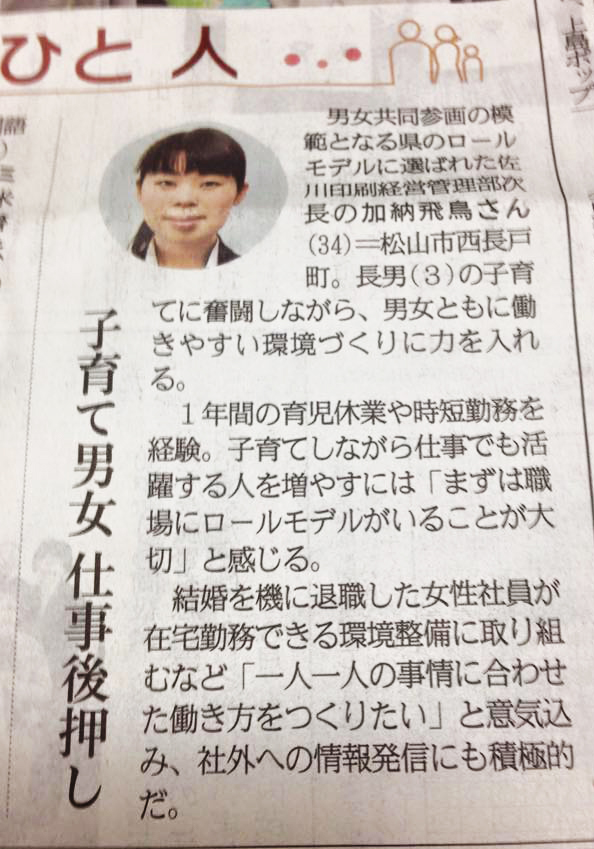 ひと人…
男女共同参画の模
範となる県のロール
モデルに選ばれた佐
川印刷経営管理部次
長の加納飛鳥さん
(34)＝松山市西長戸
町。長男(3)の子育
てに奮闘しながら、男女ともに働
きやすい環境づくりに力を入れ
る。
1年間の育児休業や時短勤務を
経験。子育てしながら仕事でも活
躍する人を増やすには「まずは職
場にロールモデルがいることが大
切」と感じる。
結婚を機に退職した女性社員が
在宅勤務できる環境整備に取り組
むなど「一人一人の事情に合わせ
た働き方をつくりたい」と意気込
み、社外への情報発信にも積極的
だ。
子育て男女 仕事後押し
上島ポップ